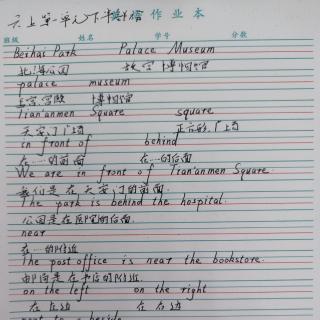 六上第一单元下半 英语作业本
班级 姓名 学号 分数
Beihai Park Palace Museum
北海公园 故宫博物馆
palace museum
皇宫,宫殿 博物馆
Tian'anmen Square square
天安门广场 正方形,广场
in front of behind
在…的前面 在…的后面
We are in front of Tian'anmen Square.
我们是在天安门的前面.
The park is behind the hospital.
公园是在医院的后面.
near
在…的附近
The post office is near the bookstore.
邮局是在书店的附近.
on the left on the right
在左边 在右边
next to = beside